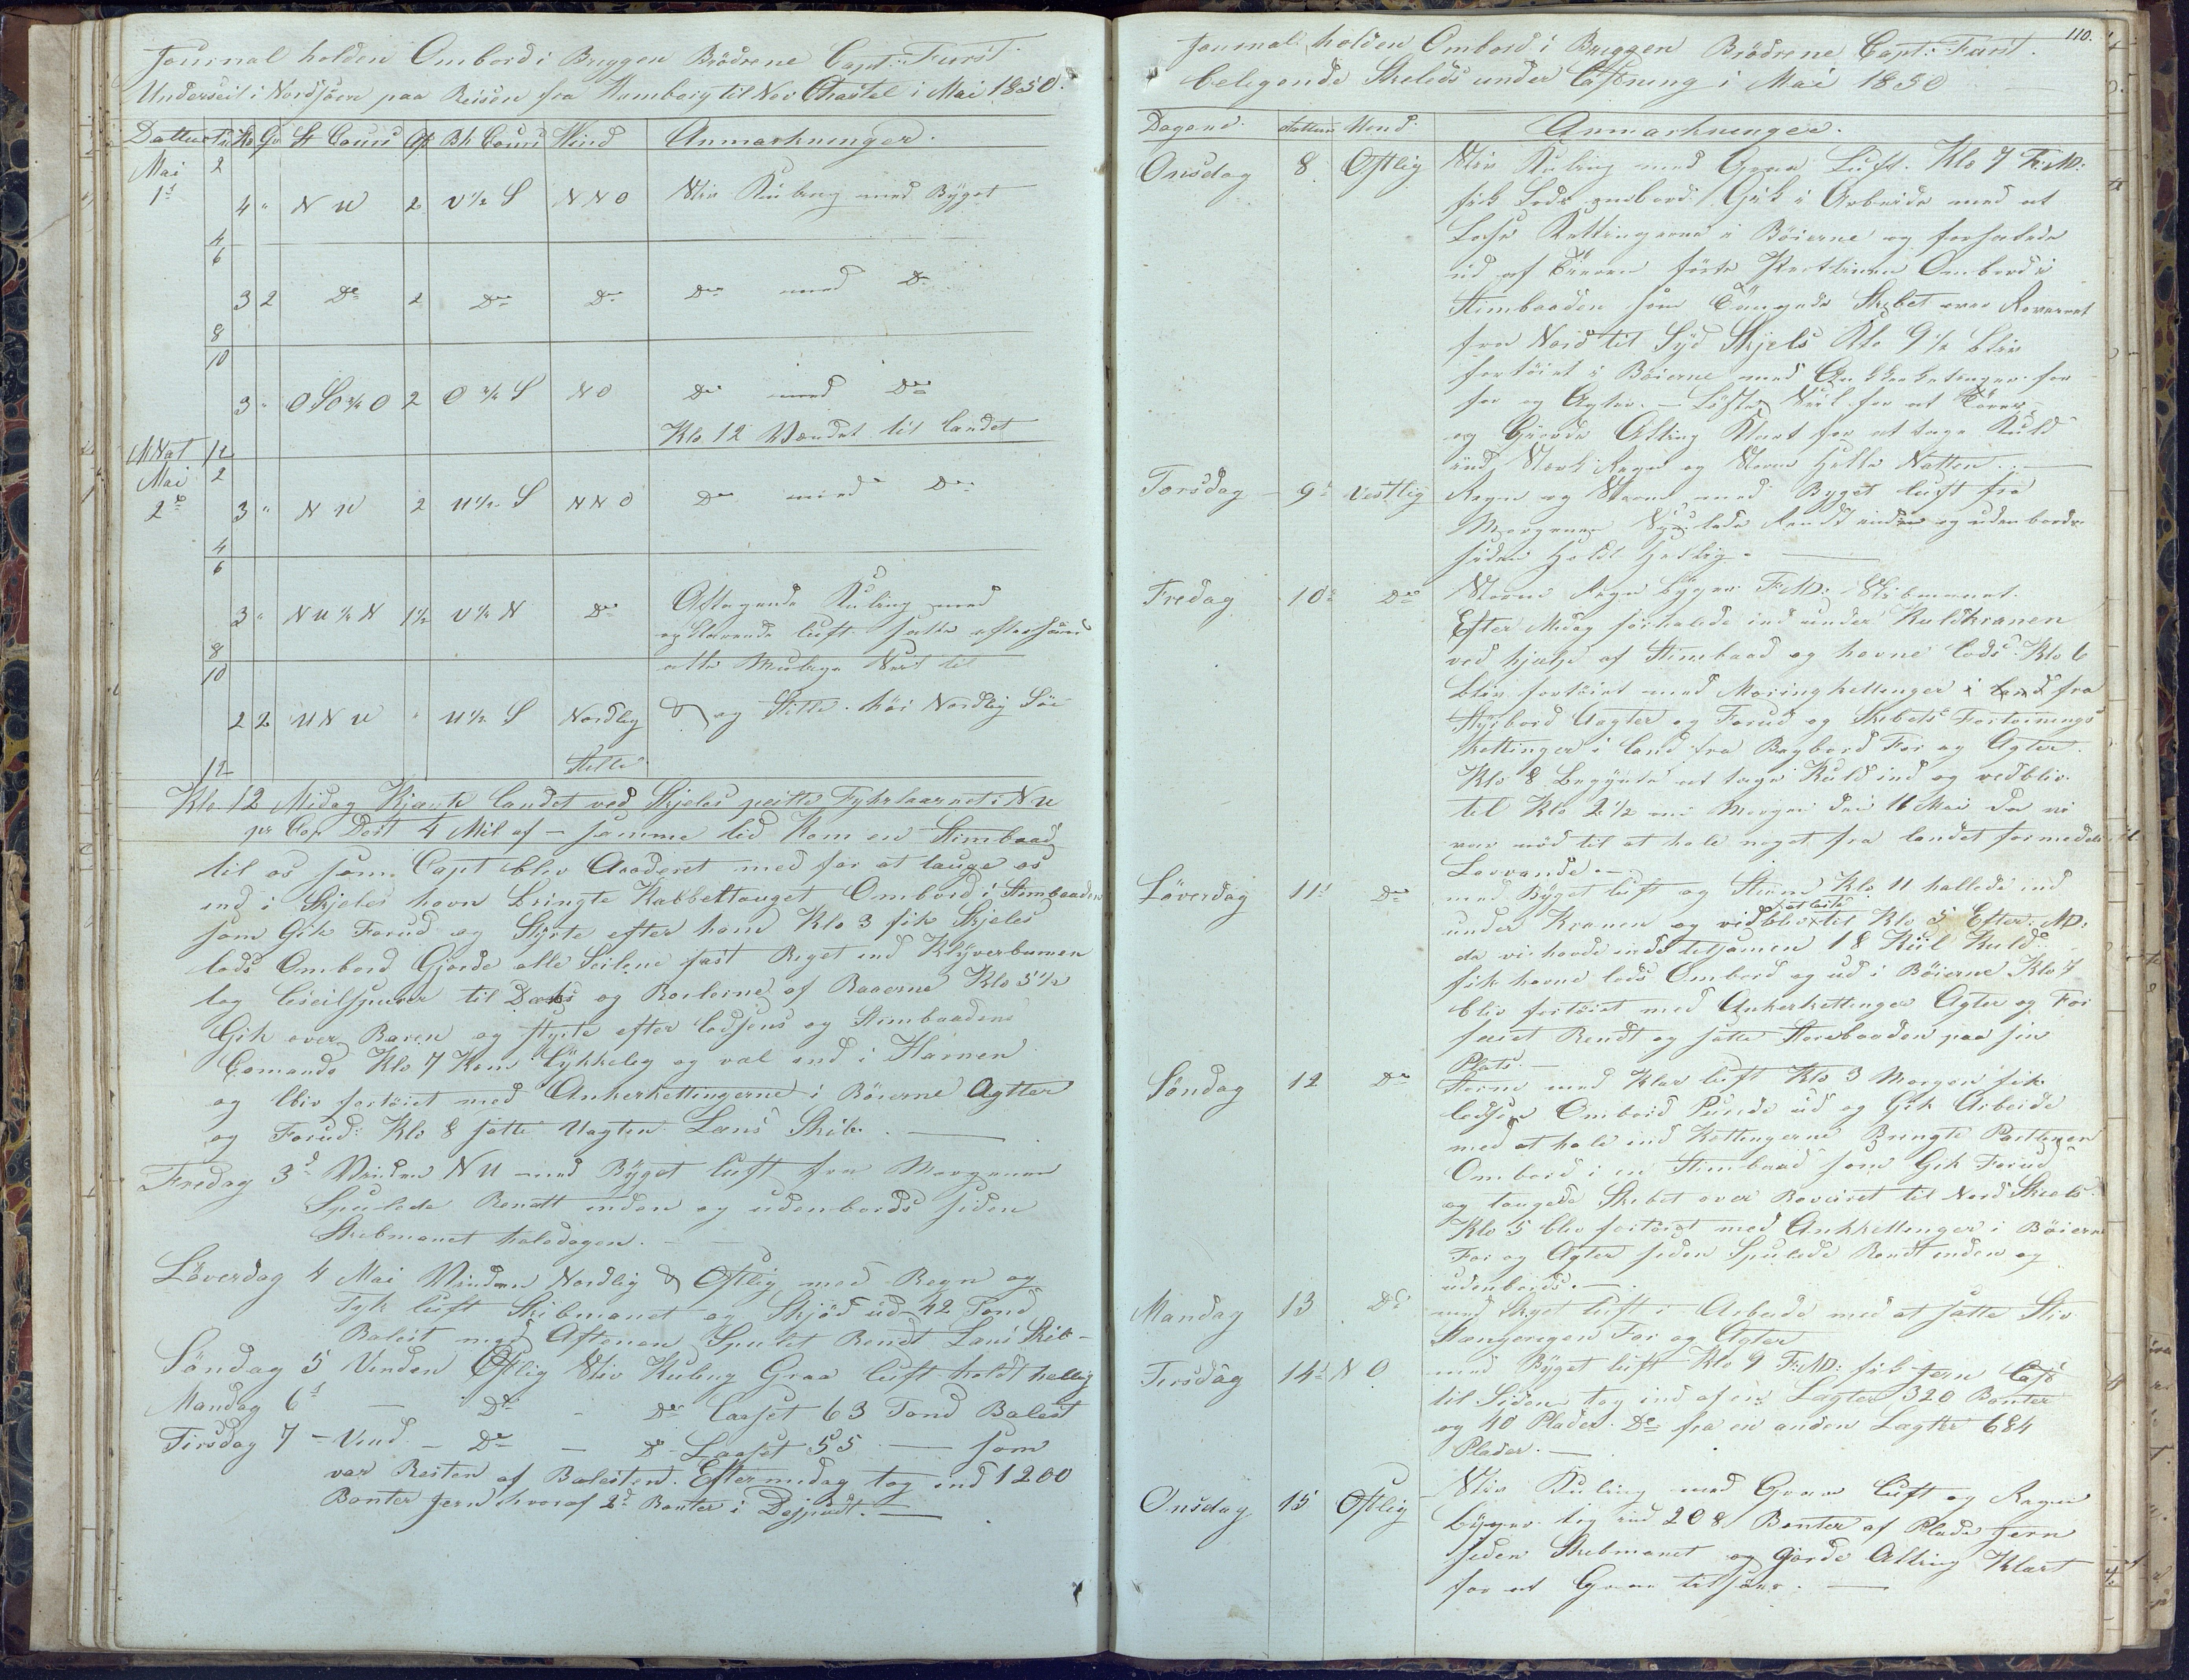 Journal holden Ombord i Briggen Brödrene Capt: Furst
Underseil i Nordsjöen paa Reisen fra Hamborg til Nev Chastel i Mai 1850.
Dattu Ti Kn Qv St Cours Af Bh Cours Wind Anmærkninger.
Mai 2
1st 4 " N W 2 V ½ S N N O Stiv Kuling med Byget
4
6
3 2 Do 2 Do Do Do med Do
8
10
3 " O S O ¾ O 2 O ¾ S N O Do med Do
Klo 12 Vendet til Landet
MNat 12
Mai 2
2d 3 " N W 2 W ½ S N N O Do med Do
4
6
3 " N W ½ N 1½ V ½ N Do Aftagende Kuling med
opklarende luft satte efterhaand
8 alle Mulige Seil til
10
2 2 W N W " W ½ S Nordlig og Stille. höi Nordlig Söe
12 Stille
Klo 12 Midag Kjente landet ved Skjeles peilte Fyhrtaarnet i N W
pr Cop Dist 4 Mil af – samme tid Kom en Stimbaad
til os som Capt blev Acoderet med for at tauge os
ind i Skjeles havn bringte Kabbeltauget Ombord i Stimbaaden
som Gik Forud og Styrte efter ham Klo 3 fik Skjeles
lods Ombord Gjorde alle Seilene fast Riget ind Klyverbomen
tog Leseilspirer til Dæks og af Raaerne Klo 5½
Gik over Baren og styrte efter lodsens og Stimbaadens
Comando Klo 7 Kom Lykkelig og vel ind i Havnen
og blev fortöiet med Ankerkettingerne i Böierne Agtter
og Forud: Klo 8 satte Vagten Lens Skib. —
Fredag 3d Vinden N W med Byget luft fra Morgenen
Spulede Rendt inden og udenbords siden
Skibmanet heledagen. —
Löverdag 4 Mai Vinden Nordlig & Ostlig med Regn og
Tyk luft Skibmanet og Skjöd ud 42 Tond
Balest med Aftenen Spulet Rendt Lens Skib –
Söndag 5 Vinden Ostlig Stiv Kuling Graa luft holdt hellig
Mandag 6d — Do - Do Lasset 63 Tond Balest
Tirsdag 7 – Vind – Do — Do Lasset 55 — som
var Resten af Balesten. Eftermidag tog ind 1200
Bonter Jern hvoraf 2d Bonter i —
110.
Journal holden Ombord i Briggen Brödrene Capt: Furst.
beligende Skelds under Lasning i Mai 1850
Dagene. Dattum Vend. Anmærkninger.
Onsdag 8 Ostlig Stiv Kuling med Graa Luft. Klo 7 F:M:
fik Lods ombord Gik i Arbeide med at
Losse Kettingerne i Böierne og forhalede
ud af förte Pærtlinen Ombord i
Stimbaaden som Taugede Skibet over Reveret
fra Nord til Syd Skjels Klo 9½ blev
fortöiet i Böierne med Ankkerketinger for
for og Agter. – Löste Seil for at Törres
og Gjorde Alting Klart for at tage Kuld
ind Stærk Regn og Storm hele Natten. —
Torsdag 9d Vestlig Regn og Storm med Byget luft fra
Morgenen Spulede Rendt inden og udenbords
siden holdt hellig. —
Fredag 10d Do Storm Regn byger F:M: Skibmanet
Efter Midag forhalede ind under Kuldkranen
ved hjælp af Stimbaad og havne Lods. Klo 6
blev fortöiet med Moringkettinger i land fra
Styrbord Aagter og Forud og Skibets Fortöinings
Kettinger i land fra Bagbord For og Agter.
Klo 8 Begynte at tage Kuld ind og vedblev
til Klo 2½ om Morgen den 11 Mai da vi
var nöd til at hale noget fra landet formedelst
Lavvande. —
Löverdag 11d Do med Byget luft og Storm Klo 11 hallede ind
under Kranen og vidblev at laste til Klo 5 Efter: M:
da vi havde inde tilsamen 18 Kiil Kuld
fik havne lods Ombord og ud i Böierne Klo 7
blev fortöiet med Ankerkettinger Agter og For
feiet Rendt og satte Storebaaden paa sin
Plads. —
Söndag 12 Do Storm med Klar luft Klo 3 Morgen fik
lodsen Ombord Purrede ud og Gik Arbeide
med at hale ind Kettingerne Bringte Pærtlinen
Ombord i en Stimbaad som Gik Forud
og taugede Skibet over Reveiret til Nord Skiels.
Klo 5 blev fortöiet med Ankkettinger i Böierne
For og Agter siden Spulede Rendt inden og
udenbords. —
Mandag 13 Do med Skyet luft i Arbeide med at sætte Stiv
Stængerigen For og Agter
Tirsdag 14d N O med Byget luft Klo 9 F:M: fik Jern Last
til Siden tog ind af en Lægter 320 Bonter
og 40 Plader. Do fra en anden Lægtter 684
Plader. —
Onsdag 15 Ostlig Stiv Kuling med Graae Luft og Regn
byger tog ind 208 Bonter af Plade Jern
siden Skibmanet og Gjorde Alting Klart
for at Gaae tilsöes. —